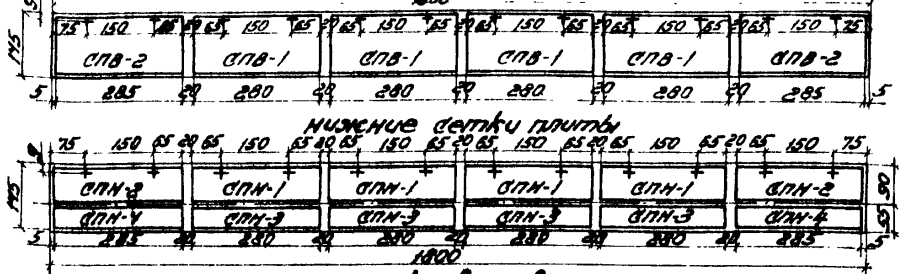 75 150 65 20 65 150 65 20 65 150 65 20 65 150 65 20 65 150 65 20 65 150 75
145
СПВ-2 СПВ-1 СПВ-1 СПВ-1 СПВ-1 СПВ-2
5 285 20 280 20 280 20 280 20 280 20 285 5
Нижние сетки плиты
75 150 65 20 65 150 65 20 65 150 65 20 65 150 65 20 65 150 65 20 65 150 75
145
СПН-2 СПН-1 СПН-1 СПН-1 СПН-1 СПН-2 90
СПН-4 СПН-3 СПН-3 СПН-3 СПН-3 СПН-4 55
5 285 20 280 20 280 20 280 20 280 20 285 5
1800